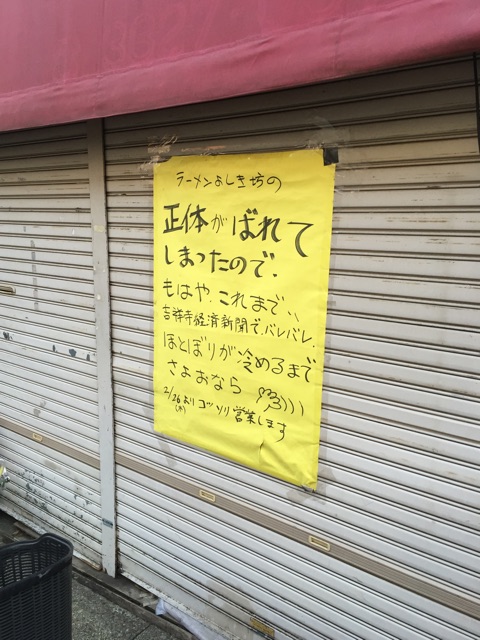 ラーメンよしき坊の
正体がばれて
しまったので、
もはや、これまで、、
吉祥寺経済新聞で、バレバレ、
ほとぼりが冷めるまで
さよおなら
2/26(木)よりコッソリ営業します